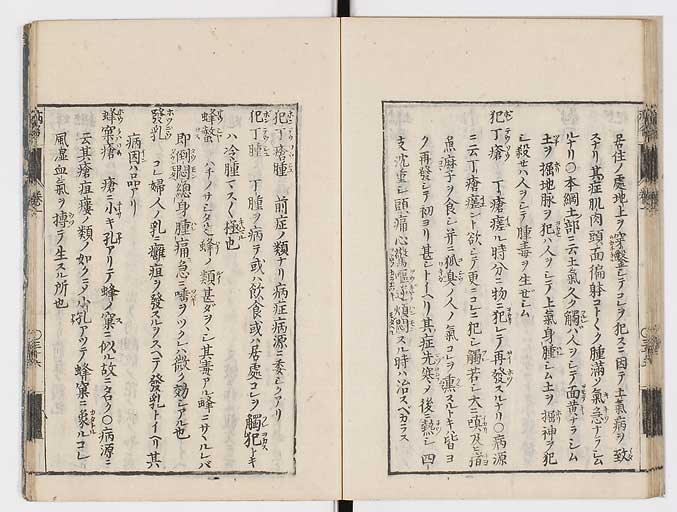 居住ノ處地上ヲ穿鑿シテコレヲ犯スニ因テ土氣病ヲ致
スナリ其症肌肉頭面偏躰コトコトク腫滿ソ氣急ナラシム
ルナリ〇本綱土部ニ云土氣久ク觸バ人ヲシテ面黄ナラシム
土ヲ掘地脉ヲ犯ハ人ヲシテ上氣身腫シム土ヲ掘神ヲ犯
シ殺セハ人ヲシテ腫毒ヲ生ゼシム
犯丁瘡 丁瘡瘥ル時分ニ物ニ犯レテ再發スルナリ〇病源
ニ云丁瘡瘥ント欲シテ更ニコレニ犯シ觸若シ大ニ嗔及ヒ
麻子ヲ食シ并ニ狐臭ノ人ノ氣コレヲ熏スルトキ皆ヨ
ク再發シテ初ヨリ甚シトイヘリ其症先寒ノ後ニ熱シ四
支沈重シ頭痛心驚嘔逆煩悶スル時ハ治スベカラス
犯丁瘡腫 前症ノ類ナリ病症病源ニ委シクアリ
犯丁腫 丁腫ヲ病テ或ハ飲食或ハ居處コレヲ觸犯トキ
ハ冷腫テスク極也
蜂螫 ハチノサシタ蜂ノ類甚ダヲヽシ其毒アル蜂ニサヽルレバ
即倒悶總身腫痛急ニ嚏ヲツクレバ微シ効シアル也
發乳 コレ婦人ノ乳ニ癰疽ヲ發スルヲスヘテ發乳トイヘリ其
病因ハ品アリ
蜂窠瘡 瘡ニ小キ孔アリテ蜂ノ窠ニ似ル故ニ名ク〇病源ニ
云其瘡疽瘻ノ類ノ如ク三ノ小孔アツテ蜂窠ニ象ルコレ
風濕血氣ヲ搏テ生スル所也